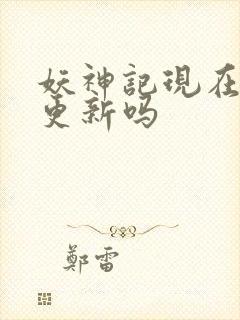 妖神記現在
更新吗
鄭雷